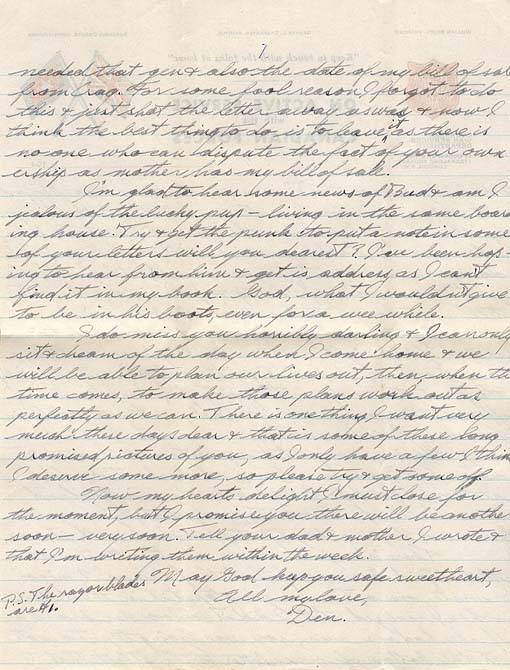 needed that gen & also the date of my bill of sale
from Crag. For some fool reason I forgot to do
this & just shot the letter away as was & now I
think the best thing to do is to leave it as there is
no one who can dispute the fact of your own
ership as mother has my bill of sale.
I'm glad to hear some news of Bud & am I
jealous of the lucky pup - living in the same board
ing house. Try & get the punk to put a note in some
of your letters will you dearest? I've been hop-
ing to hear from him & get is address as I can't
find it in my book. God, what I wouldn't give
to be in his boots, even for a wee while.
I do miss you horribly darling & I can only
sit & dream of the day when I come home & we
will be able to plan our lives out, then, when the
time comes, to make those plans work out as
perfectly as we can. There is one thing I want very
much these days dear & that is some of those long
promised pictures of you, as I only have a few & I think
I deserve some more, so please try & get some off.
Now my hearts delight I must close for
the moment, but I promise you there will be another
soon - very soon. Tell your dad & mother I wrote &
that I'm writing them within the week.
May God keep you safe sweetheart,
All my love,
Den.
P.S. The razor blades
are A1.